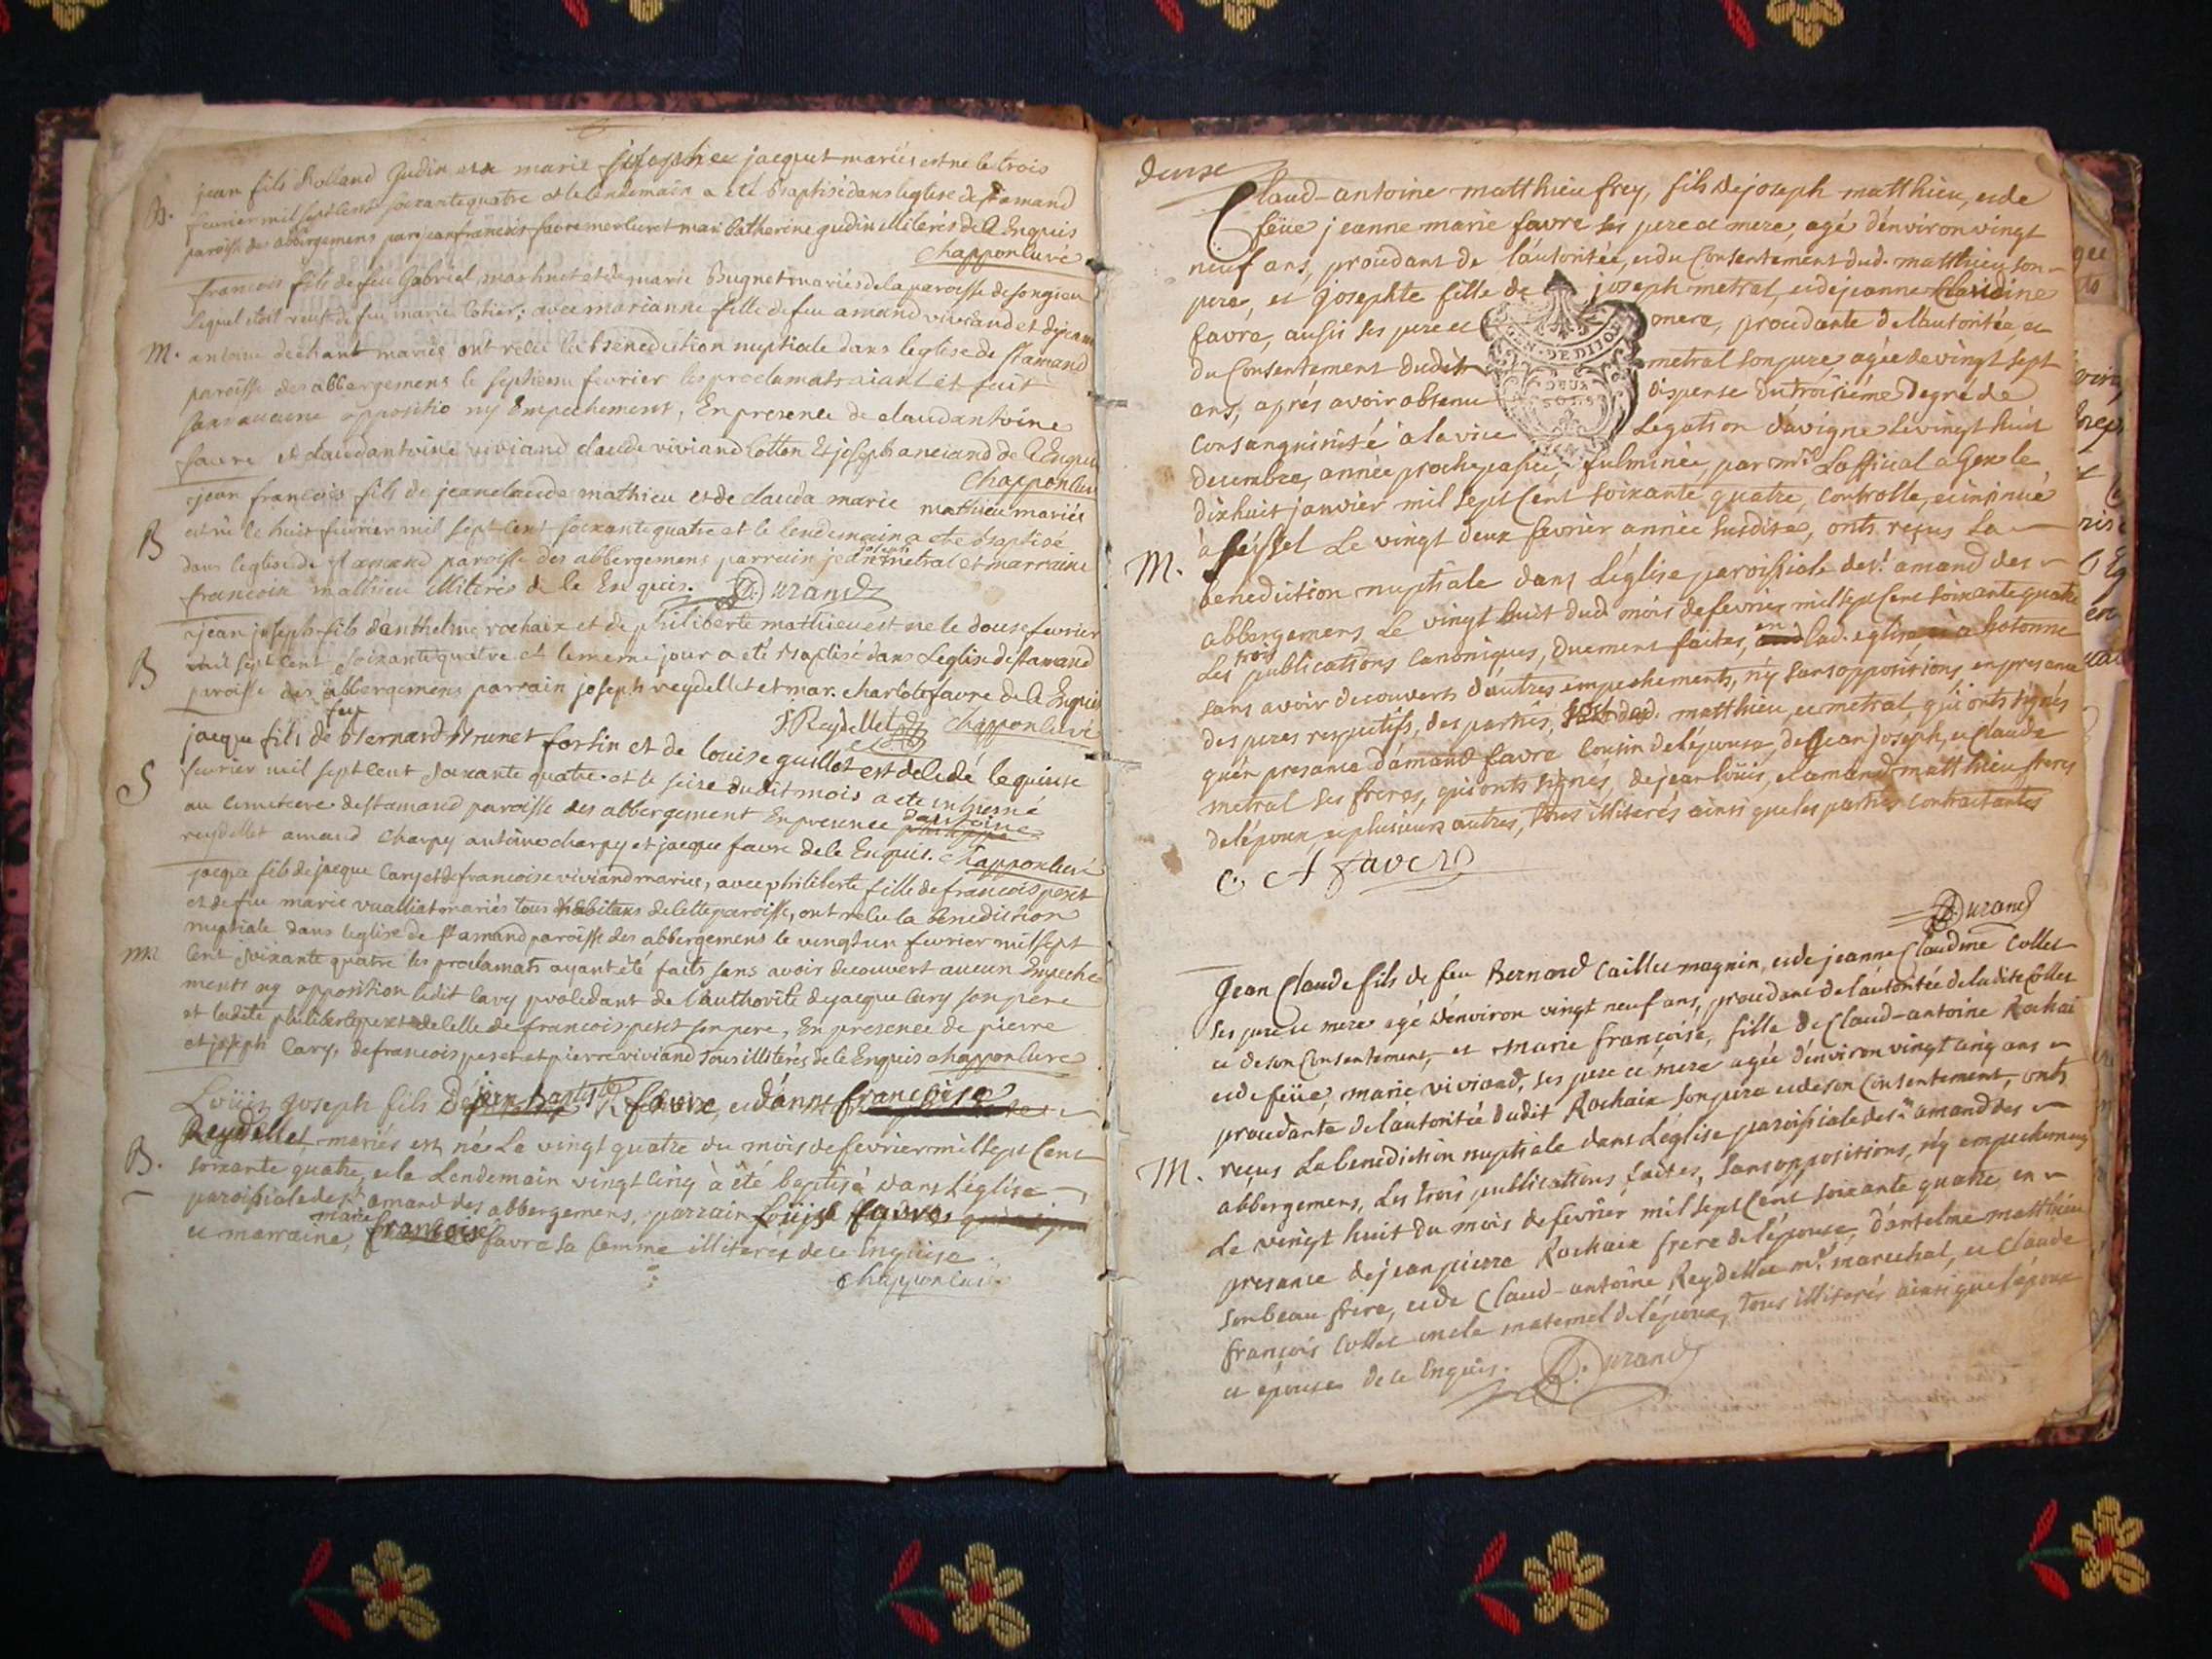 B. jean fils Rolland Gudin et de marie josephte jacquet mariés est ne le trois
fevrier mil sept cent soixante quatre et le lendemain a eté Baptisé dans leglise de st amand
paroisse des abbergemens par jean francois favre merlin et mar. Catherine gudin illiterés de le Enquis
Chappon curé
francois fils de feu Gabriel martinet et de marie Bugnet mariés de la paroisse de songieu
lequel etoit veuf de feu marie ; avec marianne fille de feu amand viviand et de jeanne
M. antoine dechant mariés ont recu la Benediction nuptiale dans leglise de st amand
paroisse des abbergemens le septieme fevrier les proclamats aiant eté fait
sans aucune oppositio ny Empechement, En presence de claud antoine
favre et claud antoine viviand claude viviand Cotton Et joseph anciand de le Enquis
Chappon curé
jean francois fils de jean claude mathieu et de clauda marie mathieu mariés
est né le huit fevrier mil sept cent soixante quatre et le lendemain a eté Baptisé
B dans leglise de st amand paroisse des abbergemens parrain jean joseph metral et marraine
francoise mathieu illiterés de le Enquis. D. Durand
jean joseph fils d'anthelme rochaix et de philiberte mathieu est ne le douse fevrier
B mil sept cent soixante quatre et le meme jour a eté Baptisé dans Leglise de st amand
paroisse des abbergemens parrain joseph reydellet et mar. charlote favre de le Enquis
J. Reydellet Chappon curé
feu
jacque fils de Bernard Brunet fortin et de louise guillot est decedé le quinse
S fevrier mil sept cent soixante quatre et le seise du dit mois a ete inhumé
au cimetiere de st amand paroisse des abbergement En presence d'antoine
reydellet amand Charpy antoine charpy et jacque favre de le Enquis. Chappon curé
jacque fils de jacque Cary et de francoise viviand mariés, avec philiberte fille de francois peset
et de feu marie vualliat mariés tous habitans de cette paroisse, ont recu la benediction
nuptiale dans leglise de st amand paroisse des abbergemens le vingt un fevrier mil sept
M. cent soixante quatre les proclamats ayant été faits sans avoir decouvert aucun Enpeche
ments ny opposition ledit Cary procedant de l'authorité de jacque Cary son pere
et ladite philiberte peset de celle de francois peset son pere, En presence de pierre
et joseph Cary, de francois peset et pierre viviand tous illiterés de le Enquis Chappon curé
Loüis joseph fils De jean baptiste favre, et d'anne francoise
Reydellet mariés est né Le vingt quatre du mois de fevrier mil sept Cent
B. soixante quatre, et le Lendemain vingt cinq à été baptisé dans L'église
paroissiale de st amand des abbergemens, parrain Loüis favre
et marraine, marie francoise favre sa femme illiterés de ce Enquise
Chappon curé
deuse
Claud-antoine matthieu frey, fils de joseph matthieu, et de
feüe jeanne marie favre ses pere et mere, agé d'environ vingt
neuf ans, procedant de l'autoritée, et du Consentement dud. matthieu son
pere, et josephte fille de joseph metral, et de jeanne Claudine
favre, aussi ses pere et mere, procedante de l'autoritée, et
du Consentement dudit metral son pere, agée de vingt sept
GEN. DE DIJON
DEUX SOLS
ans, après avoir obtenu dispense du troisiéme degré de
consanguinité a la vice Legation d'avignon Le vingt huit
decembre, année proche passée, fulminée par mr. L'official a Gex le
dix huit janvier mil sept Cent soixante quatre, controllé, et insinué
à seissel Le vingt deux fevrier année susdite, onts reçus La
M. benediction nuptiale dans L'église paroissiale de st. amand des
abbergemens Le vingt huit dud. mois de fevrier mil sept Cent soixante quatre
Les trois publications Canoniques, duement faites, en lad. eglise, et a hotonne
sans avoir decouvert d'autres empechements, n'y sans oppositions en presence
des peres respectifs, des parties, matthieu, et metral, qui onts signés
qu'en presance d'amand favre Cousin de l'épouse, de jean joseph, et Claude
metral ses freres, qui onts signés, de jean loüis, et amand matthieu freres
de l'époux, et plusieurs autres, tous illiterés ainsi que les parties Contractantes
A favre
D. Durand
Jean Claude fils de feu Bernard Caillet magnin, et de jeanne Claudine Collet
ses pere et mere agé d'environ vingt neuf ans, procedant de l'autoritée de ladite Collet
et de son Consentement, et marie françoise, fille de Claud-antoine Rochaix
et de feüe, marie viviand, ses pere et mere agée d'environ vingt cinq ans
procedante de l'autoritée dudit Rochaix son pere et de son Consentement, onts
M. reçus La benediction nuptiale dans L'église paroissiale de st. amand des
abbergemens, Les trois publications faites, sans oppositions, n'y empechements
Le vingt huit du mois de fevrier mil sept Cent soixante quatre, en
presance de jean pierre Rochaix frere de l'épouse, d'antelme matthieu
son beau frere, et de Claud-antoine Reydellet mr. marechal, et Claude
françois Collet oncle maternel de l'époux, tous illiterés ainsi que l'époux
et épouse de ce Enquis. D. Durand